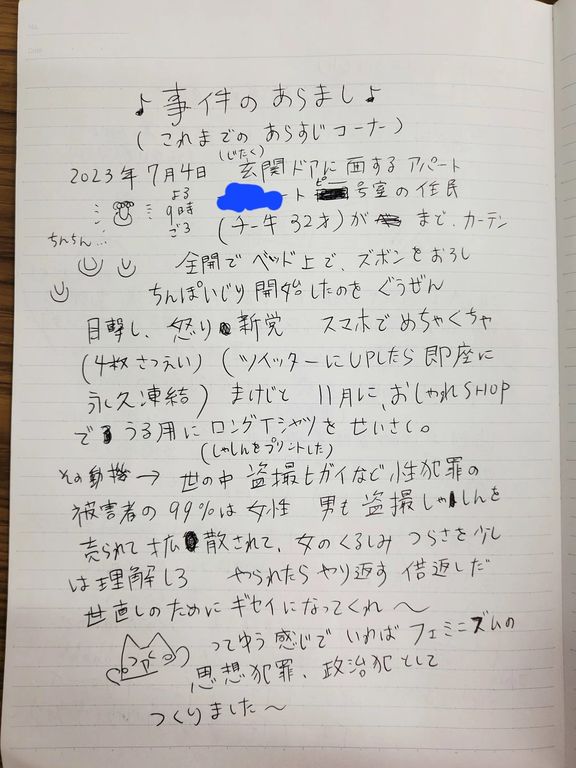 ♪事件のあらまし♪
(これまでのあらすじコーナー)
2023年7月4日 (じたく)玄関ドアに面するアパート
よる9時ごろ ート ピー号室の住民
(チー牛32才)が まで、カーテン
ちんちん…
全開でベッド上で、ズボンをおろし
ちんぽいじり開始したのをぐうぜん
目撃し、怒り新党 スマホでめちゃくちゃ
(4枚さつえい)(ツイッターにUPしたら即座に
永久凍結) まけじと 11月に、おしゃれSHOP
でうる用にロングTシャツをせいさく。
(しゃしんをプリントした)
その動機→ 世の中 盗撮ヒガイなど性犯罪の
被害者の99%は女性 男も盗撮しゃしんを
売られて拡散されて、女のくるしみ つらさを少し
は理解しろ やられたらやり返す 借返しだ
世直しのためにギセイになってくれ〜
ってゆう感じでいわばフェミニズムの
思想犯罪、政治犯として
つくりました〜